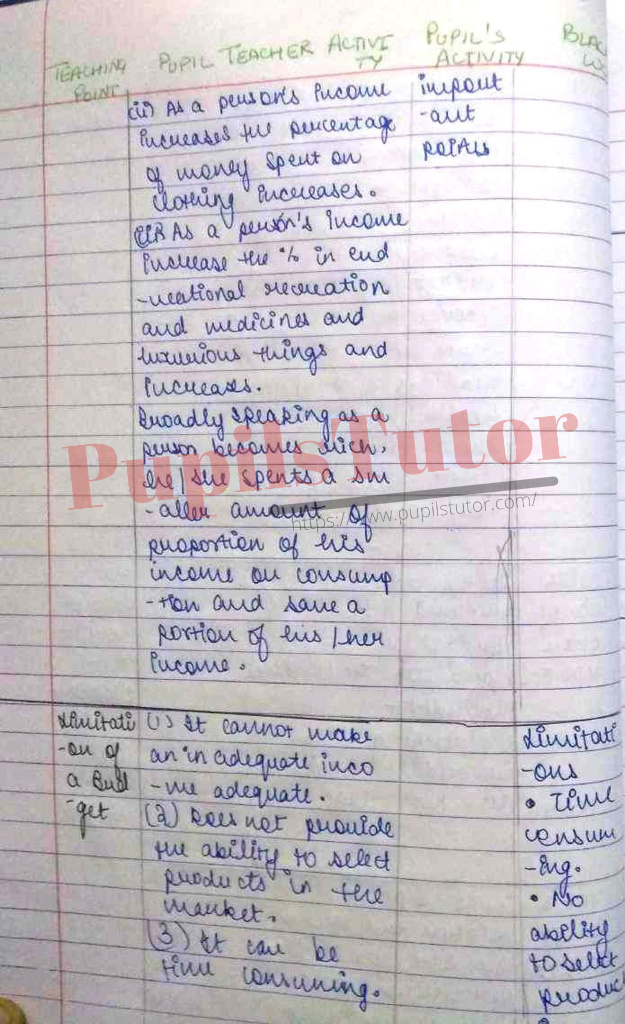 TEACHING POINT
PUPIL TEACHER ACTIVITY
PUPIL'S ACTIVITY
BLAC
(ii) As a person's Income
increases the percentage
of money spent on
clothing increases.
As a person's income
increase the % in
-ucational recreation
and medicines and
luxurious things and
increases.
Broadly speaking as a
person becomes rich,
he/she spents a sm
-aller amount of
proportion of his
income on consump
-tion and save a
portion of his/her
income.
import
-ant
points
Limitati
-on of
a Bud
-get
(1) It cannot make
an inadequate inco
-me adequate.
(2) Does not provide
the ability to select
products in the
market.
(3) It can be
time consuming.
Limitati
-ons
• Time
consum
-ing.
• No
ability
to select
produc
PupilsTutor
https://www.pupilstutor.com/